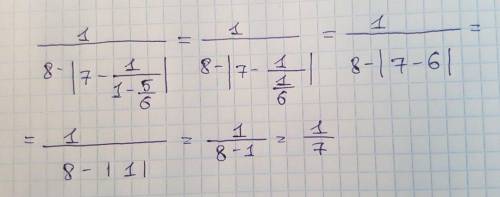 1/(8-|7-1/(1-5/6)|) = 1/(8-|7-1/(1/6)|) = 1/(8-|7-6|) =
= 1/(8-|1|) = 1/(8-1) = 1/7